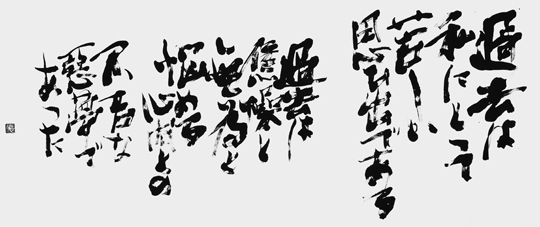 過去は
私にとって
苦しい
思ひ出である
過去は
焦躁と
無為と
悩める
心肉との
不吉な
惡夢で
あった